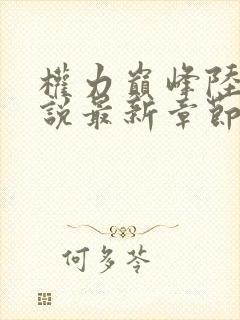 權力巔峰陸
說最新章節
何多苓